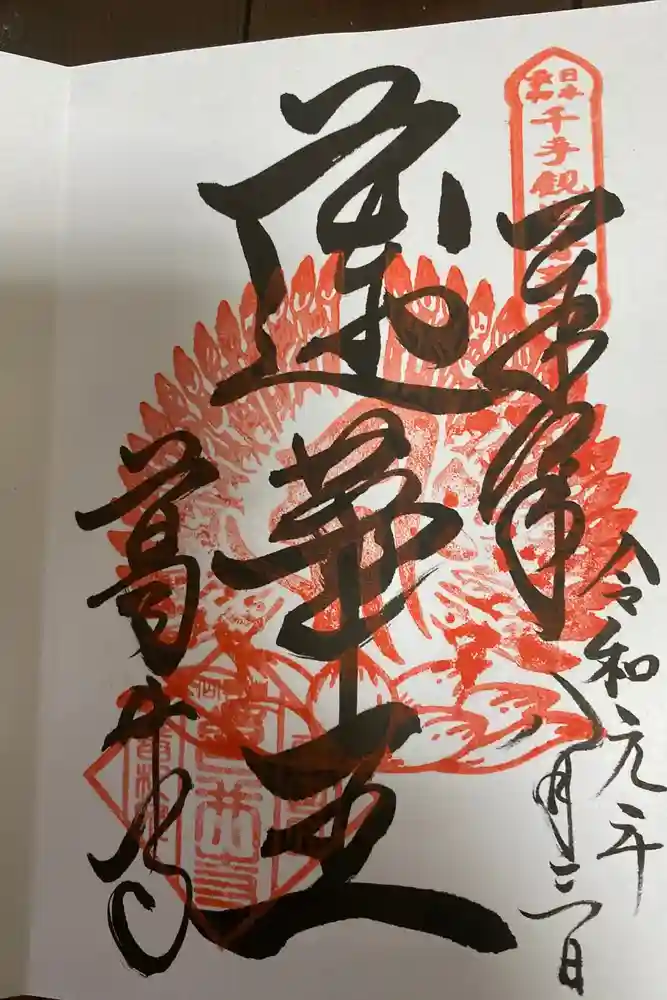 日本最初
千手観
奉拝
令和元年
八月三日
蓮華王
葛井寺